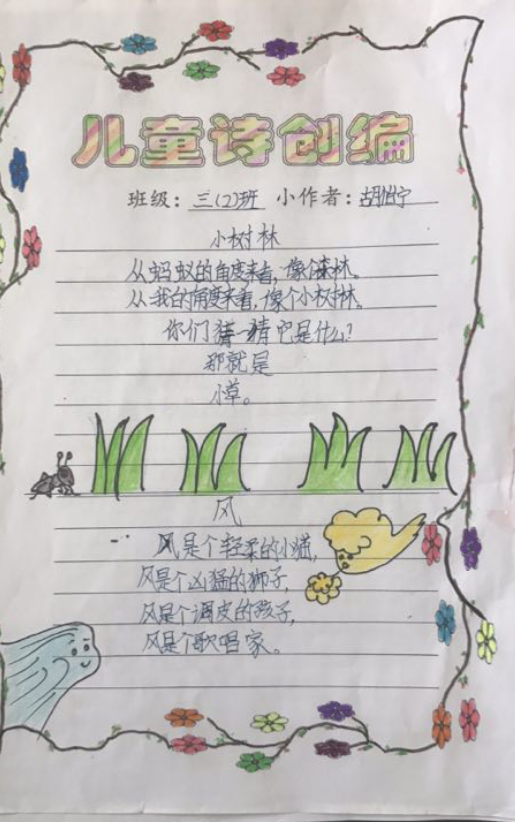 儿童诗创编
班级：三(2)班 小作者：胡怡宁
小树林
从蚂蚁的角度来看，像个森林。
从我的角度来看，像个小树林。
你们猜一猜它是什么？
那就是
小草。
风
风是个轻柔的小猫，
风是个凶猛的狮子，
风是个调皮的孩子，
风是个歌唱家。